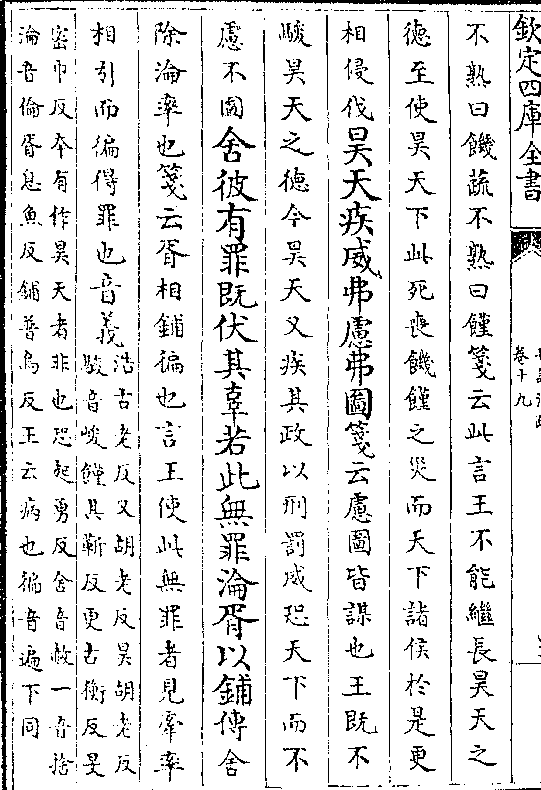 欽定四庫全書
卷十九
不熟曰饑蔬不熟曰饉箋云此言王不能繼長昊天之
德至使昊天下此死喪饑饉之災而天下諸侯於是更
相侵伐昊天疾威弗慮弗圖箋云慮圖皆謀也王既不
駿昊天之德今昊天又疾其政以刑罰威恐天下而不
慮不圖舍彼有罪既伏其辜若此無罪淪胥以鋪傳舍
除淪率也箋云胥相鋪徧也言王使此無罪者見牽率
相引而徧得罪也音義浩古老反又胡老反昊胡老反
駿音峻饉其靳反更古衡反旻
密巾反本有作昊天者非也恐起勇反舍音赦一音捨
淪音倫胥息魚反鋪普烏反王云病也徧音遍下同